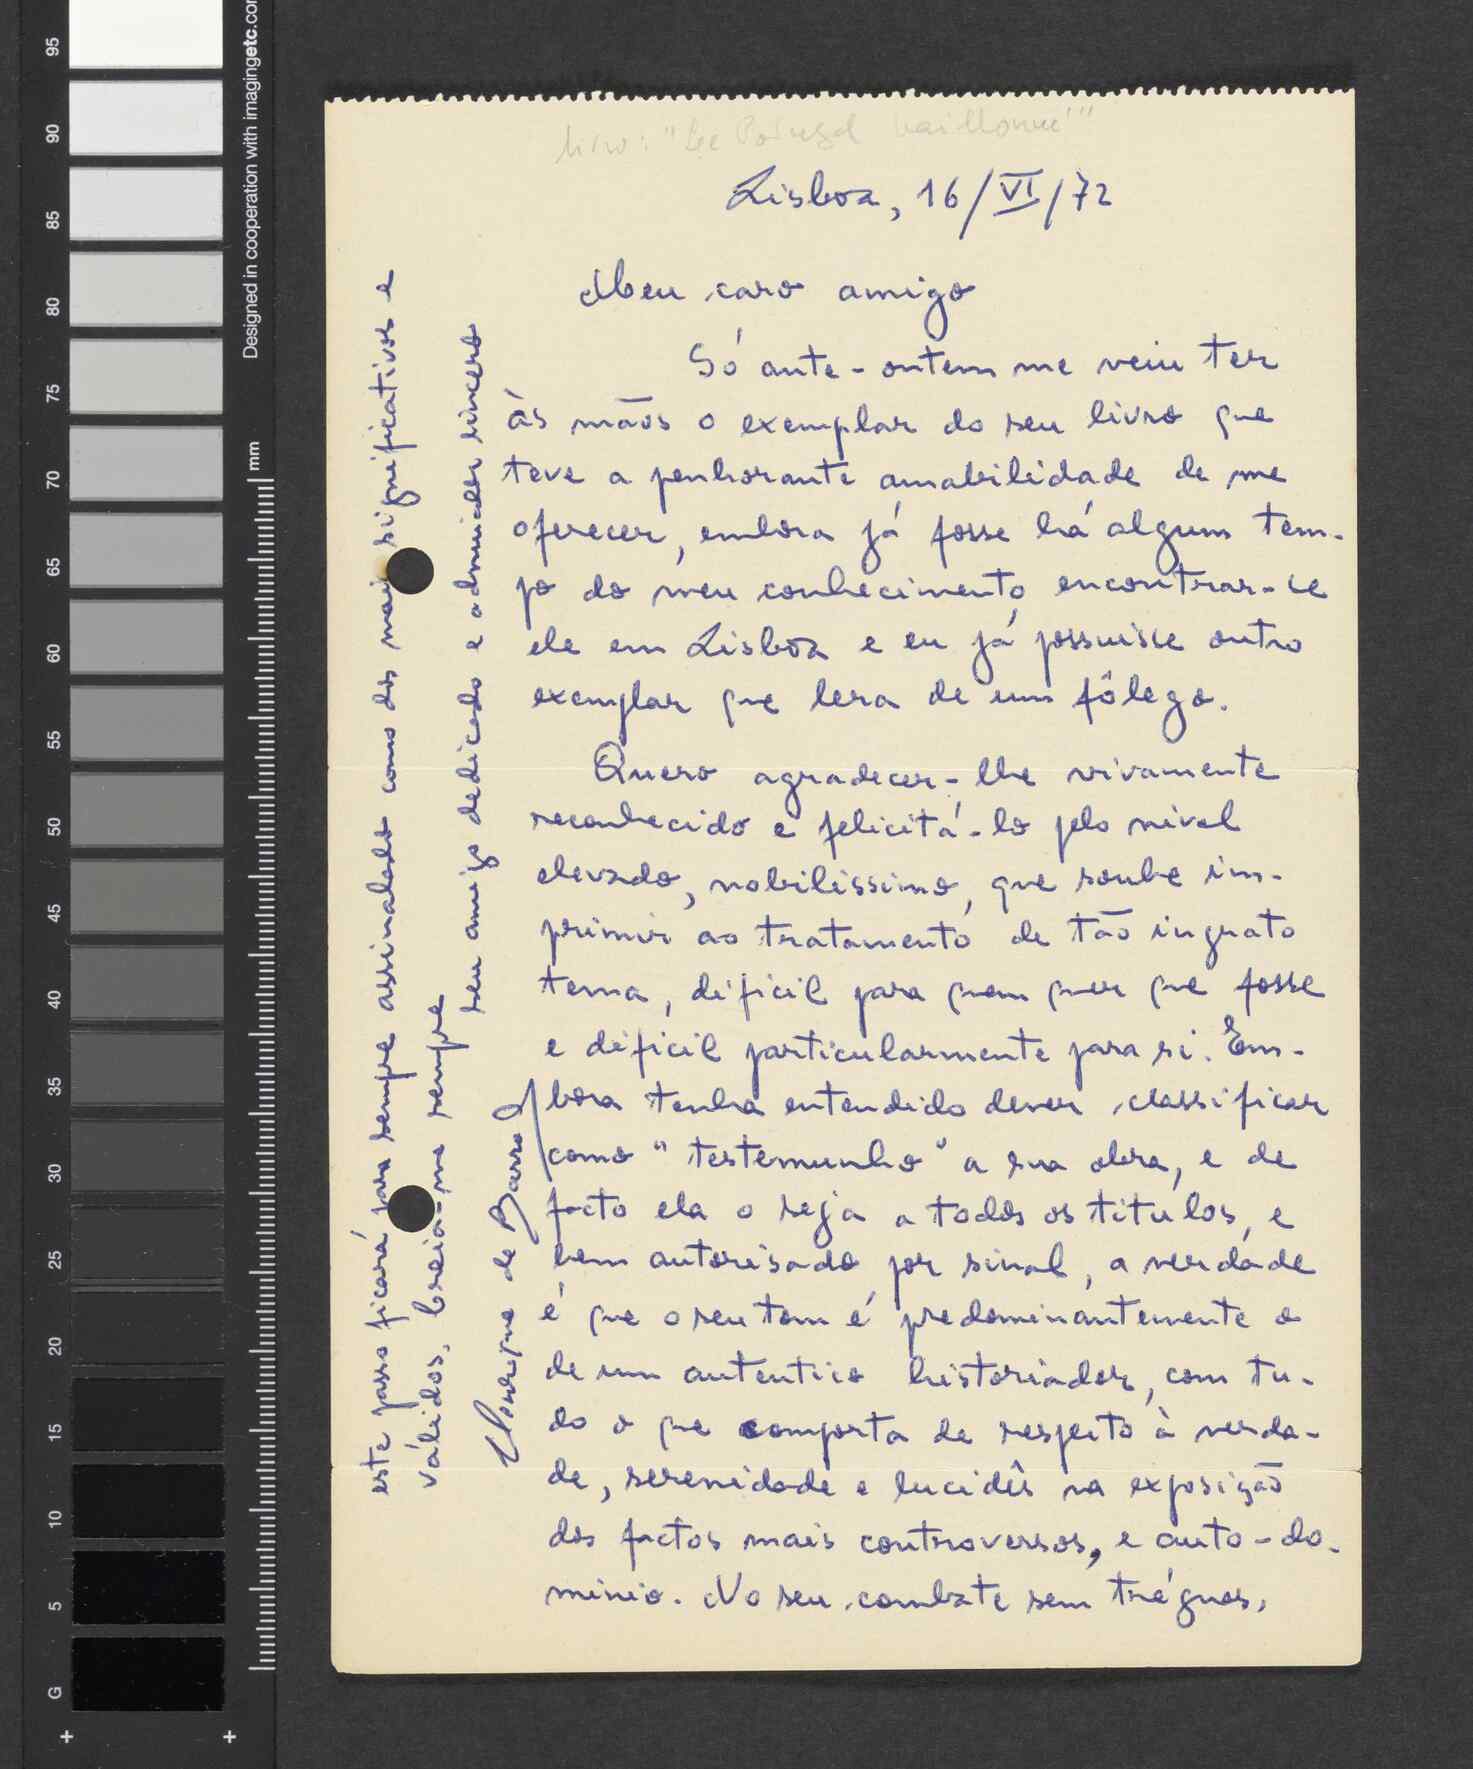 livro: "Le Portugal baillonné"
Lisboa, 16/VI/72
Meu caro amigo
Só ante-ontem me veiu ter
às mãos o exemplar do seu livro que
teve a penhorante amabilidade de me
oferecer, embora já fosse há algum tem-
po do meu conhecimento encontrar-se
ele em Lisboa e eu já possuisse outro
exemplar que lera de um fôlego.
Quero agradecer-lhe vivamente
reconhecido e felicitá-lo pelo nivel
elevado, nobilissimo, que soube im-
primir ao tratamento de tão ingrato
tema, dificil para quem quer que fosse
e dificil particularmente para si. Em-
bora tenha entendido dever classificar
como "testemunho" a sua obra, e de
facto ela o seja a todos os titulos, e
bem autorisado por sinal, a verdade
é que o seu tom é predominantemente o
de um autentico historiador, com tu-
do o que comporta de respeito à verda-
de, serenidade e lucidês na exposição
dos factos mais controversos, e auto-do-
minio. No seu combate sem tréguas,
este passo ficará para sempre assinalado como dos mais significativos e
válidos. Creia-me sempre
seu amigo dedicado e admirador sincero
Henrique de Barros
95
90
85
80
75
70
65
60
55
50
45
40
35
30
25
20
15
10
5
G
mm
Designed in cooperation with imagingetc.com